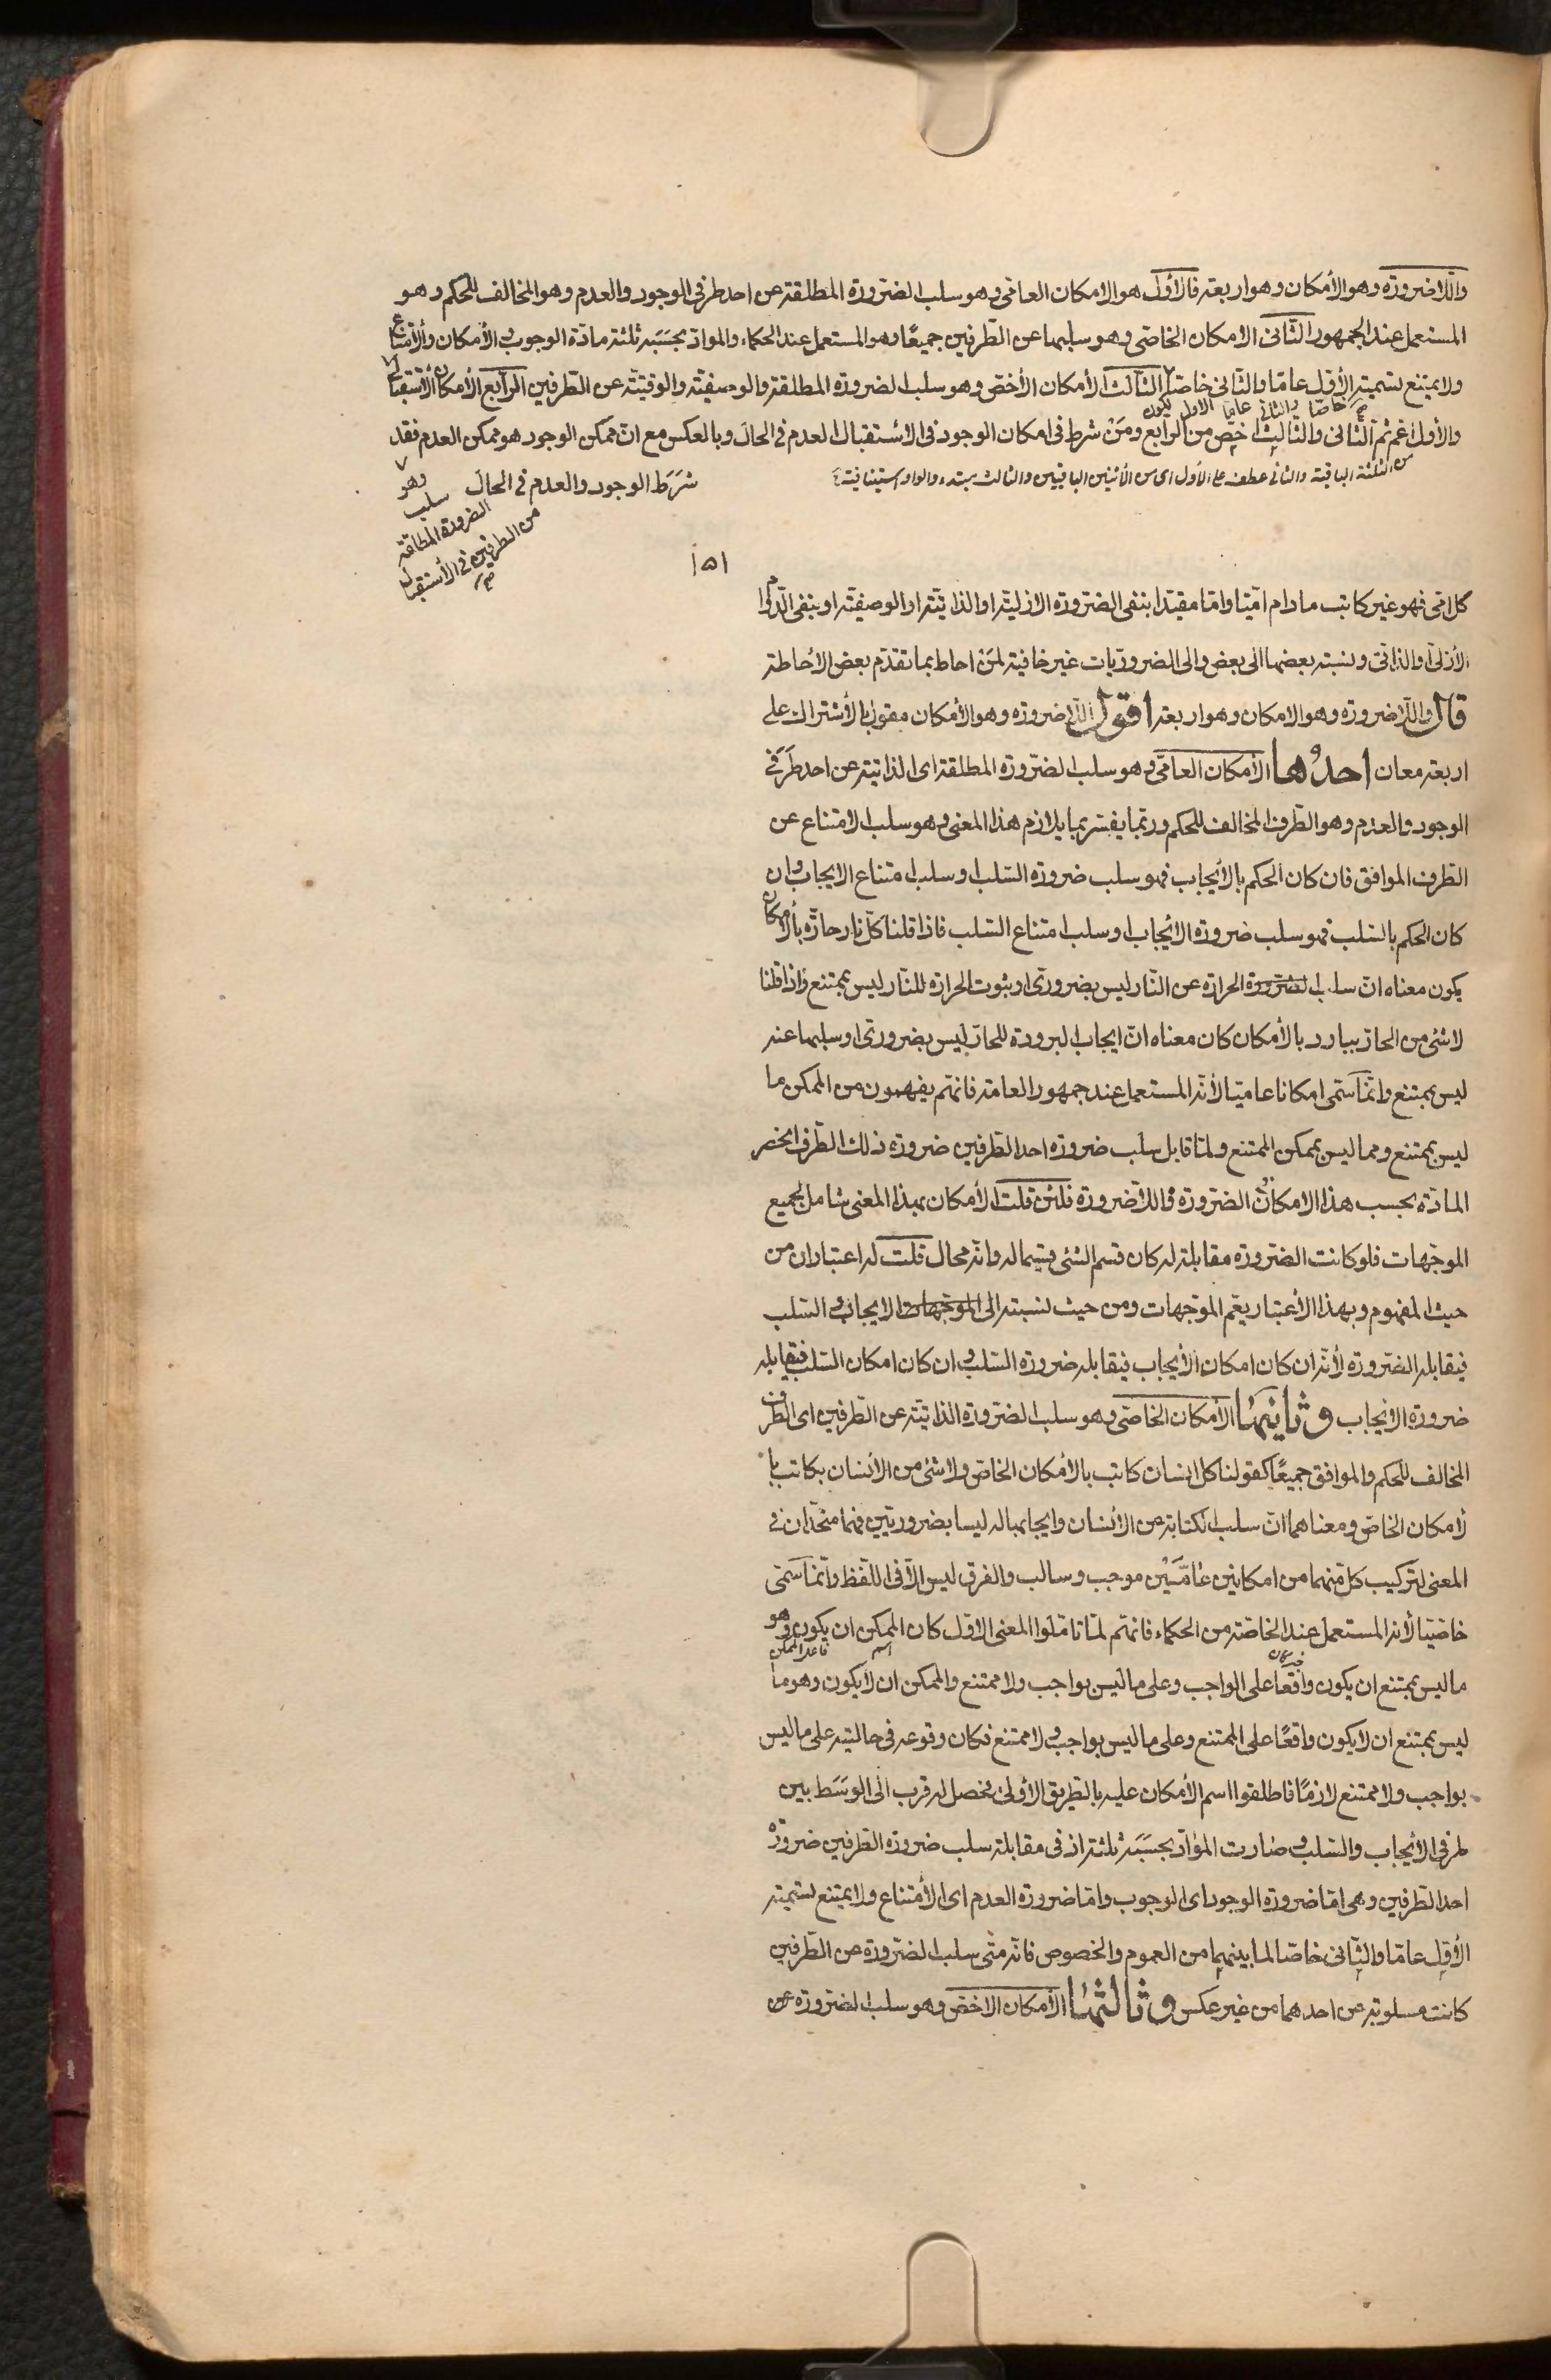 واللاضرورة وهو الأمكان وهو اربعة فالأول هو الامكان العامى وهو سلب الضرورة المطلقة عن احد طرفى الوجود والعدم وهو المخالف للحكم وهو
المستعمل عند الجمهور الثانى الامكان الخاصى وهو سلبها عن الطرفين جميعًا وهو المستعمل عند الحكماء والمواد بحسَبَه ثلثة مادة الوجوب والأمكان والأمتناع
ولا يمتنع تسمية الأول عامّا والثانى خاصّا الثالث الأمكان الأخصّ وهو سلب الضرورة المطلقة والوصفيّة والوقتيّة عن الطرفين الرابع الأمكان الأستقبالى
خاصّا والثانى عامّا الاول يكون
والأول اعم ثم الثانى والثالث اخصّ من الرابع ومَنْ شرط فى امكان الوجود فى الاستقبال العدم فى الحال وبالعكس مع انّ ممكن الوجود هو ممكن العدم فقد
من الثلثة الباقية والثانى عطف على الأول اى من الأثنين الباقيين والثالث مبتدء والواو استينافية
شَرَط الوجود والعدم فى الحال
وهو
سلب
الضرورة المطلقة
من الطرفين فى الأستقبال
صح
١٥١
كل امّى فهو غير كاتب مادام امّيّا وامّا مقيّدا بنفى الضرورة الازليّة او الذاتيّة او الوصفيّة او بنفى الدّوام
الأزلىّ او الذاتىّ ونسبة بعضها الى بعض والى الضروريّات غير خافية لمَنْ احاط بما تقدّم بعض الأحاطة
قال واللّاضرورة وهو الامكان وهو اربعة اقول اللّاضرورة وهو الأمكان مقول بالأشتراك على
اربعة معان احدُها الأمكان العامّى وهو سلب الضرورة المطلقة اى الذاتية عن احد طَرَفَى
الوجود والعدم وهو الطرف المخالف للحكم وربّما يفسّر بما يلازم هذا المعنى وهو سلب الامتناع عن
الطرف الموافق فان كان الحكم بالأيجاب فهو سلب ضرورة السّلب او سلب امتناع الايجاب وان
كان الحكم بالسّلب فهو سلب ضرورة الأيجاب او سلب امتناع السّلب فاذا قلنا كلّ نار حارّة بالأمكان
يكون معناه انّ سلب الضرورة الحرارة عن النّار ليس بضرورىّ او ثبوت الحرارة للنّار ليس بممتنع واذا قلنا
لا شئ من الحارّ ببارد بالأمكان كان معناه انّ ايجاب البرودة للحارّ ليس بضرورىّ او سلبها عنه
ليس بممتنع وانّما سمّى امكانا عاميّا لأنّه المستعمل عند جمهور العامة فانّهم يفهمون من الممكن ما
ليس بممتنع ومما ليس بممكن الممتنع ولمّا قابل سلب ضرورة احد الطرفين ضرورة ذلك الطرف انحصر
المادّة بحسب هذا الامكان الضرورة واللّاضرورة فلئن قلت الأمكان بهذا المعنى شامل لجميع
الموجّهات فلو كانت الضرورة مقابلة له كان قسم الشئ قسيما له وانّه محال قلت له اعتباران من
حيث المفهوم وبهذا الأعتبار يعمّ الموجّهات ومن حيث نسبته الى الموجهات الايجاب والسّلب
فيقابله الضرورة لأنّه ان كان امكان الأيجاب فيقابله ضرورة السّلب وان كان امكان السّلب فيقابله
ضرورة الايجاب وثانيها الأمكان الخاصّى وهو سلب الضرورة الذاتيّة عن الطرفين اى الطرف
المخالف للحكم والموافق جميعًا كقولنا كل انسان كاتب بالأمكان الخاصّ ولا شئ من الأنسان بكاتب با
لأمكان الخاصّ ومعناهما انّ سلب الكتابة عن الأنسان وايجابها له ليسا بضروريّين فهما متّحدان فى
المعنى لتركيب كلّ منهما من امكانين عامّيَيْن موجب وسالب والفرق ليس الّا فى اللّفظ وانّما سمّى
خاصّيّا لأنّه المستعمل عند الخاصّة من الحكماء فانّهم لمّا تامّلوا المعنى الاوّل كان الممكن ان يكون وهو
خبر كان اسم قاعد الممكن
ما ليس بممتنع ان يكون واقعًا على الواجب وعلى ما ليس بواجب ولا ممتنع والممكن ان لا يكون وهو ما
ليس بممتنع ان لا يكون واقعًا على الممتنع وعلى ما ليس بواجب ولا ممتنع فكان وقوعه فى حالتيه على ما ليس
بواجب ولا ممتنع لازمًا فاطلقوا اسم الأمكان عليه بالطريق الأولى فحصل له قرب الى الوسَط بين
طرفى الأيجاب والسّلب وصارت الموادّ بحسَبَه ثلثة اذ فى مقابلة سلب ضرورة الطرفين ضرورة
احد الطرفين وهى امّا ضرورة الوجود اى الوجوب وامّا ضرورة العدم اى الأمتناع ولا يمتنع تسمية
الأول عامّا والثانى خاصّا لما بينهما من العموم والخصوص فانّه متى سلب الضرورة عن الطرفين
كانت مسلوبة عن احدهما من غير عكس وثالثها الأمكان الاخصّ وهو سلب الضرورة عن